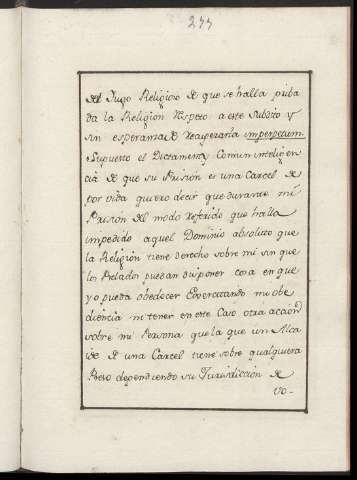 233
del Jugo Religioso de que se halla priba
da la Religion respeto a este Subdito y
sin esperanza de recuperarla imperpetum.
Supuesto el Dictamen, y Comun inteligen
cia de que su Prision es una Carcel de
por vida quiero decir que durante mi
Prision del modo referido que halla
impedido aquel Dominio absoluto que
la Religion tiene derecho sobre mi sin que
los Prelados puedan disponer cosa en que
yo pueda obedecer Exercitando mi obe
diencia ni tener en este Caso otra accion
sobre mi Persona que la que un Alca
ide de una Carcel tiene sobre qualquiera
Preso dependiendo su Jurisdiccion de
vo-